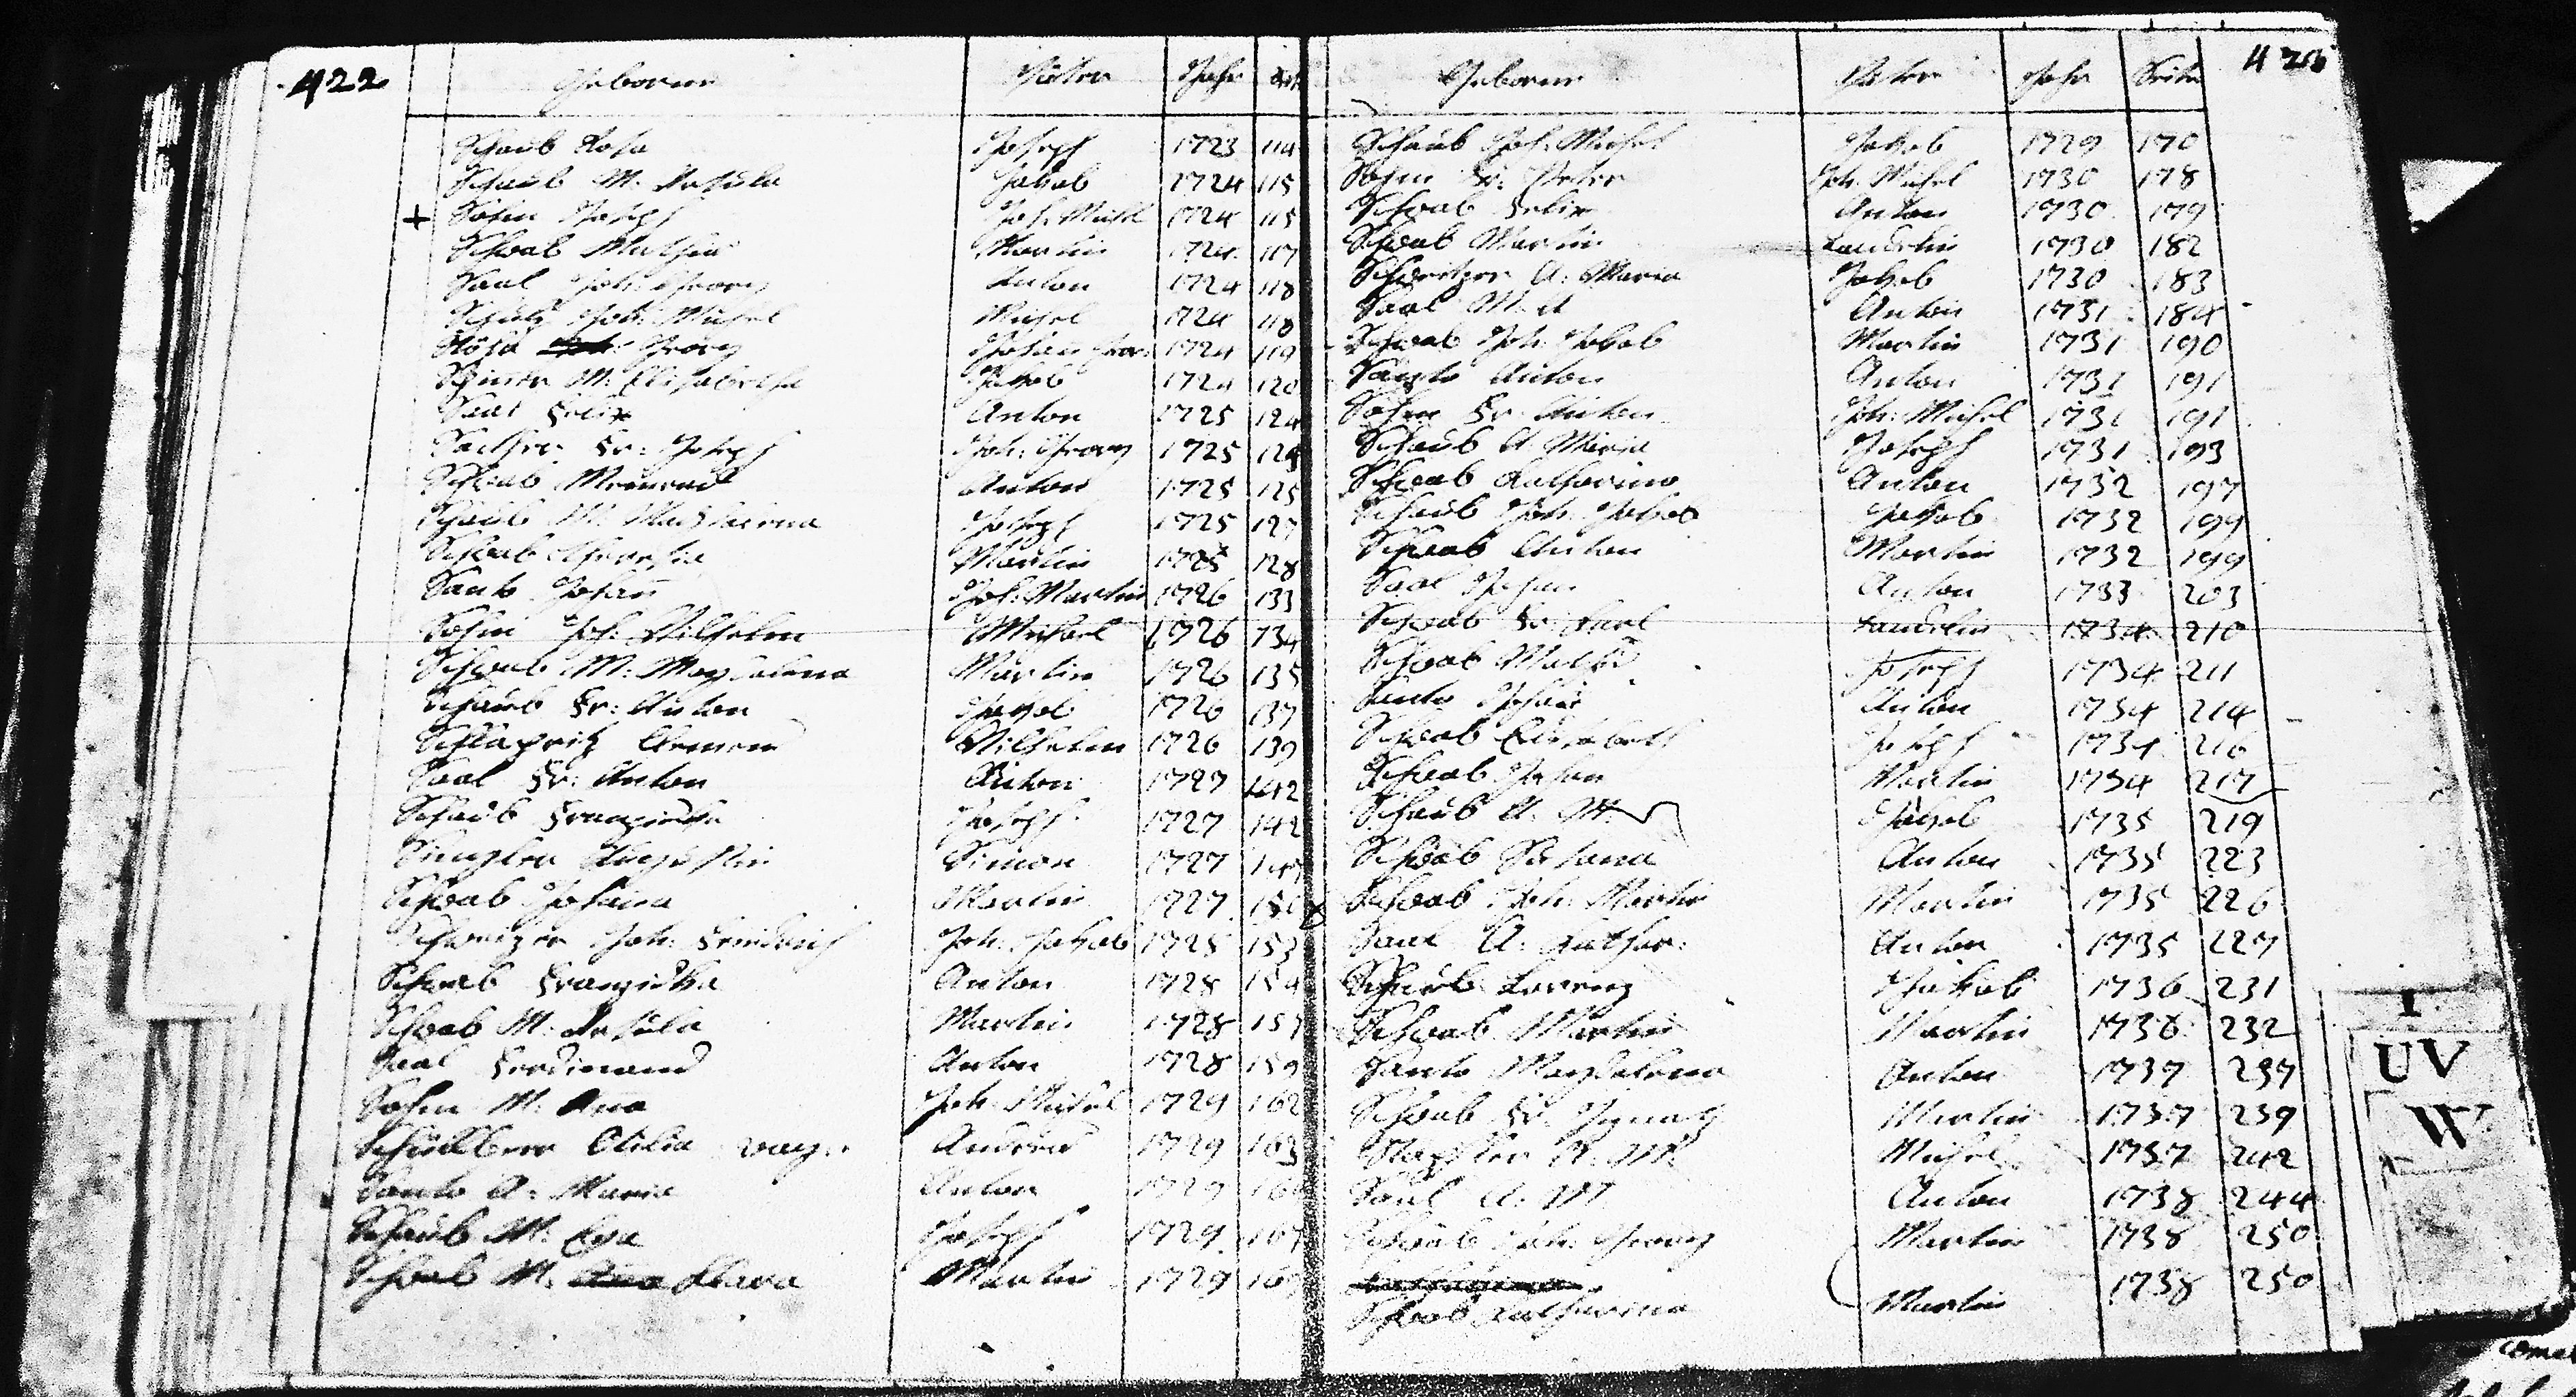 422 Geborne Väter Jahr Seit
Schaub Rosa Joseph 1723 114
Schaub M. Ursula Jakob 1724 115
+ Sohm Joseph Joh. Michl 1724 115
Schwab Mathia Martin 1724 117
Saal Joh. Georg Anton 1724 118
Joh. Michel Michel 1724 118
Georg 1724 119
M. Elisabetha Jakob 1724 120
Saal Felix Anton 1725 124
Fr. Joseph Joh. Georg 1725
Schwab Meinrad Anton 1725 125
Schaub M. Magdalena Joseph 1725 127
Schwab Martin 1725 128
Santo Johann Joh. Martin 1726 133
Sohm Joh. Wilhelm Michael 1726 134
Schwab M. Magdalena Martin 1726 135
Schaub Fr. Anton Jakob 1726 137
Wilhelm 1726 139
Saal Fr. Anton Anton 1727 142
Schaub Franziska Joseph 1727 142
Augustin Simon 1727
Schwab Johanna Martin 1727 150
Schweizer Joh. Friedrich Joh. Jakob 1728 153
Schwab Franziska Anton 1728
Schwab M. Ursula Martin 1728 157
Saal Ferdinand Anton 1728 159
Sohm M. Ana Joh. Michel 1729 162
Otilia vag. Andreas 1729 163
Santo A. Maria Anton 1729
Schaub M. Eva Joseph 1729 167
Schwab M. Ana Clara Martin 1729
Geborne Väter Jahr Seite
Schaub Joh. Michel Jakob 1729 170
Sohm Fr. Peter Joh. Michel 1730 178
Schwab Felix Anton 1730 179
Schwab Martin Landelin 1730 182
Schweitzer A. Maria Jakob 1730 183
Saal M. A Anton 1731 184
Schwab Joh. Jakob Martin 1731 190
Santo Anton Anton 1731 191
Sohm Fr. Anton Joh. Michel 1731 191
Schaub A. Maria Joseph 1731 193
Schwab Katharina Anton 1732 197
Schaub Joh. Jakob Jakob 1732 199
Schwab Anton Martin 1732 199
Saal Johan Anton 1733 203
Schwab Fr. Karl Landelin 1734 210
Schwab Joseph 1734 211
Santo Johan Anton 1734 214
Schwab Elisabeth Joseph 1734 216
Schwab Johan Martin 1734 217
Schaub A. M. Jakob 1735 219
Schwab Susana Anton 1735 223
Schwab Joh. Martin Martin 1735 226
Saal A. Kathar. Anton 1735 227
Schaub Lorenz Jakob 1736 231
Schwab Martin Martin 1736 232
Santo Magdalena Anton 1737 237
Schwab Fr. Ignatz Martin 1737 239
A. M. Michel 1737 242
Saal A. M Anton 1738 244
Schwab Joh. Georg Martin 1738 250
Schwab Katharina Martin 1738 250
UV
W